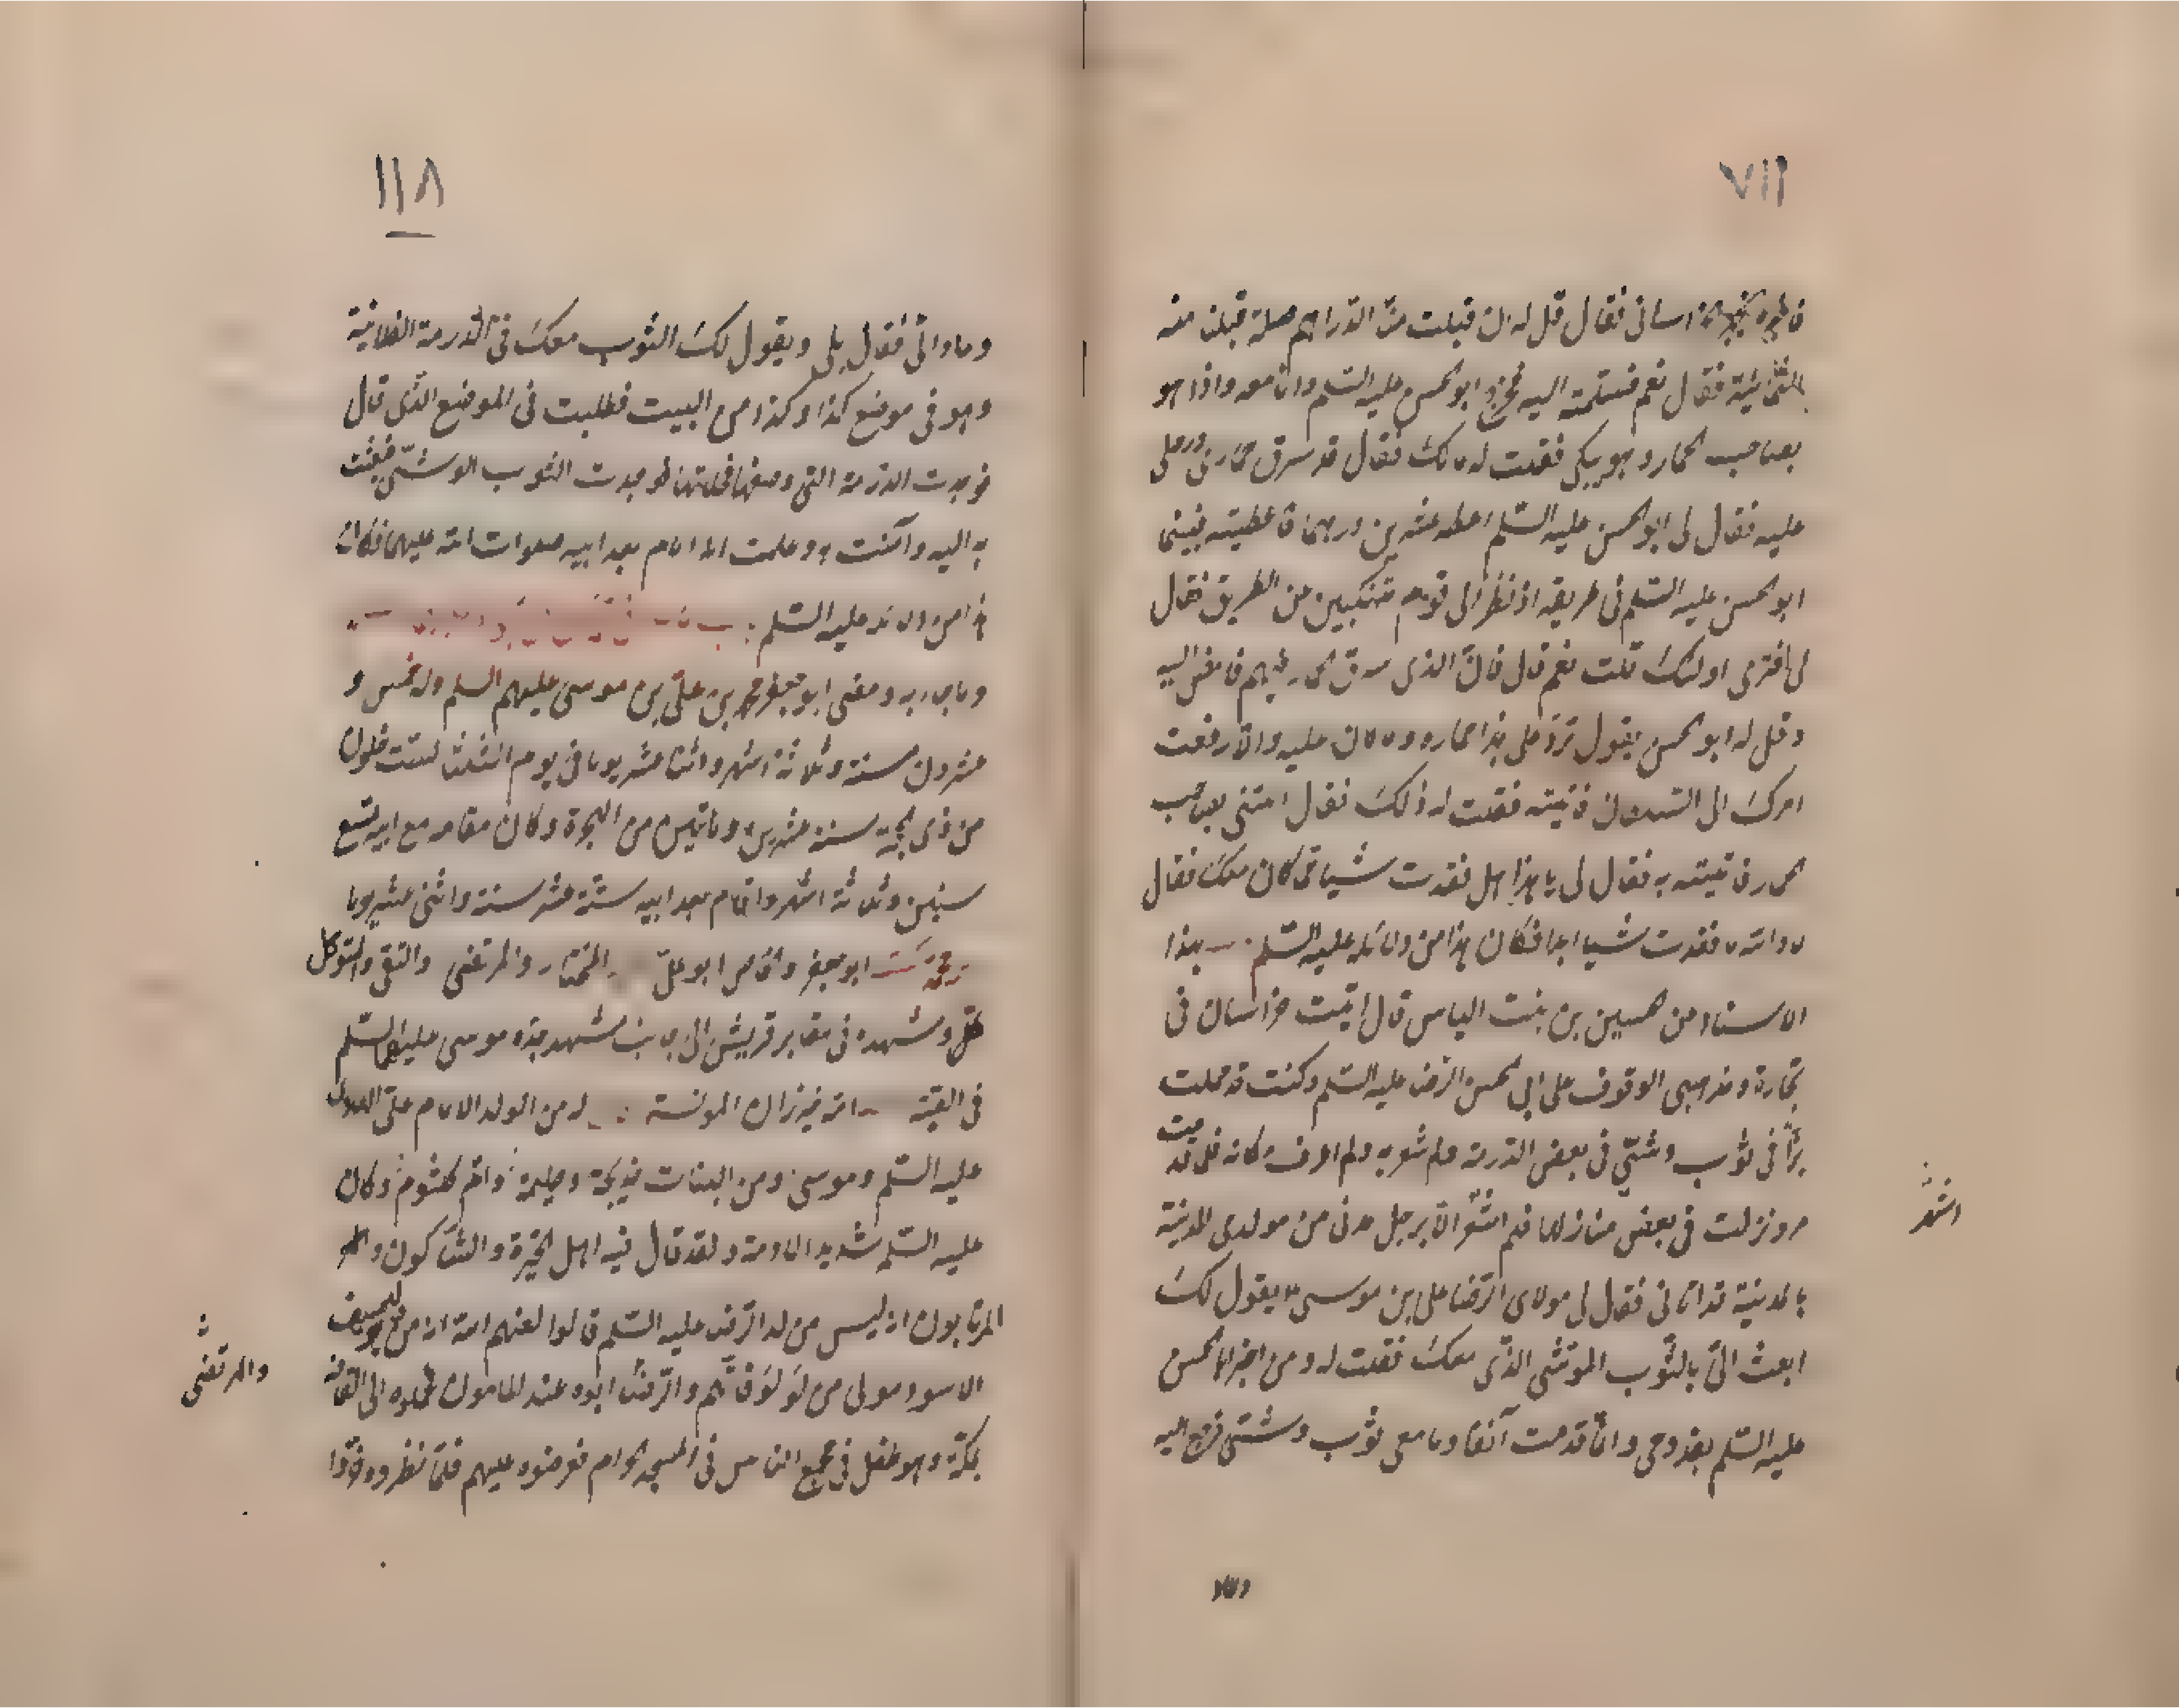 ١١٧
فقال قل له ان قبلت منا الدراهم صلة قبلنا منه
فقال نعم فسلمته اليه فخرج ابو الحسن عليه السلم وانا معه واذا هو
بصاحب الحمار وهو يبكى فقلت له مالك فقال قد سرق حمارى وحملى
عليه فقال لى ابو الحسن عليه السلم اعطه عشرين درهما فاعطيته فبينما
ابو الحسن عليه السلم فى طريقه اذ نظر الى قوم متنكبين عن الطريق فقال
لى اما ترى اولئك قلت نعم قال فان الذى سرق الحمار فيهم فامض اليه
وقل له ابو الحسن يقول ترد على هذا حماره وما كان عليه والا رفعت
امرك الى السلطان فاتيته فقلت له ذلك فقال امتنى بصاحب
الحمار فاتيته به فقال لى يا هذا هل فقدت شيا مما كان معك فقال
لا والله ما فقدت شيا ابدا فكان هذا من دلائله عليه السلم بهذا
الاسناد عن الحسين بن بنت الياس قال اتيت خراسان فى
تجارة ومذهبى الوقوف على ابى الحسن الرضا عليه السلم وكنت قد حملت
بزا فى ثوب وشى فى بعض الرزمة ولم اشعر به ولم اعرف مكانه فلما قدمت
مرو نزلت فى بعض منازلها فلم اشعر الا برجل مدنى من مولدى المدينة
بالمدينة قد اتانى فقال لى مولاى الرضا على بن موسى ع يقول لك
ابعث الى بالثوب الموشى الذى معك فقلت له ومن اخبر ابا الحسن
عليه السلم بقدومى وانا قدمت آنفا وما معى ثوب وشى فرجع اليه
اشعر
وعاد
١١٨
وعاد الى فقال بلى ويقول لك الثوب معك فى الرزمة الفلانية
وهو فى موضع كذا وكذا من البيت فطلبت فى الموضع الذى قال
فوجدت الرزمة التى وصفها فحللتها فوجدت الثوب الوشى فبعثت
به اليه وآمنت به وعلمت انه امام بعد ابيه صلوات الله عليهما فكان
هذا من دلائله عليه السلم
ومضى ابو جعفر محمد بن على بن موسى عليهم السلم وله خمس و
عشرون سنة وثلاثة اشهر واثنا عشر يوما فى يوم الثلثا لست خلون
من ذى الحجة سنة عشرين ومائتين من الهجرة وكان مقامه مع ابيه تسع
سنين وثلاثة اشهر واقام بعد ابيه ستة عشر سنة واثنى عشر يوما
ابو جعفر والخاص ابو على المختار والمرتضى والتقى والمتوكل
ومشهده فى مقابر قريش الى جانب مشهد جده موسى عليهما السلم
فى القبة امه خيزران المونسة له من الولد الامام على
عليه السلم وموسى ومن البنات خديجة وحليمة وام كلثوم وكان
عليه السلم شديد الادمة ولقد قال فيه اهل الحيرة والشاكون و
المرتابون انه ليس من ولد الرضا عليه السلم قالوا لعنهم الله انه من
الاسود مولى من لولو فانهم والرضا ابوه عند المامون حملوه الى القافة
بمكة وهو طفل فى مجمع الناس فى المسجد الحرام فعرضوه عليهم فلما نظروه
والمرتضى